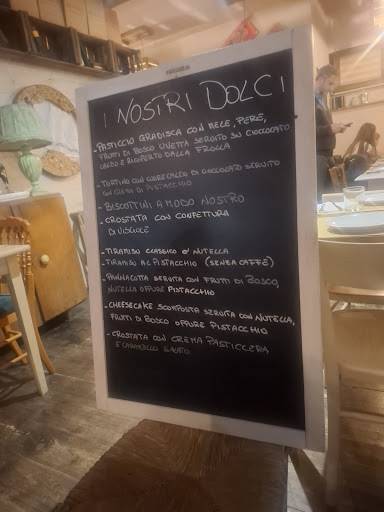 I NOSTRI DOLCI
- PASTICCIO GRADISCA CON MELE, PERE,
FRUTTI DI BOSCO UVETTA SERVITO SU CIOCCOLATO
CALDO E RICOPERTO DALLA FROLLA
- TORTINO CON CUORE CALDO DI CIOCCOLATO SERVITO
CON CREMA DI PISTACCHIO
- BISCOTTINI A MODO NOSTRO
- CROSTATA CON CONFETTURA
DI VISCIOLE
- TIRAMISU CLASSICO O' NUTELLA
- TIRAMISU AL PISTACCHIO (SENZA CAFFÈ)
- PANNACOTTA SERVITA CON FRUTTI DI BOSCO,
NUTELLA OPPURE PISTACCHIO
- CHEESECAKE SCOMPOSTA SERVITA CON NUTELLA,
FRUTTI DI BOSCO OPPURE PISTACCHIO
- CROSTATA CON CREMA PASTICCERA
E CARAMELLO SALATO